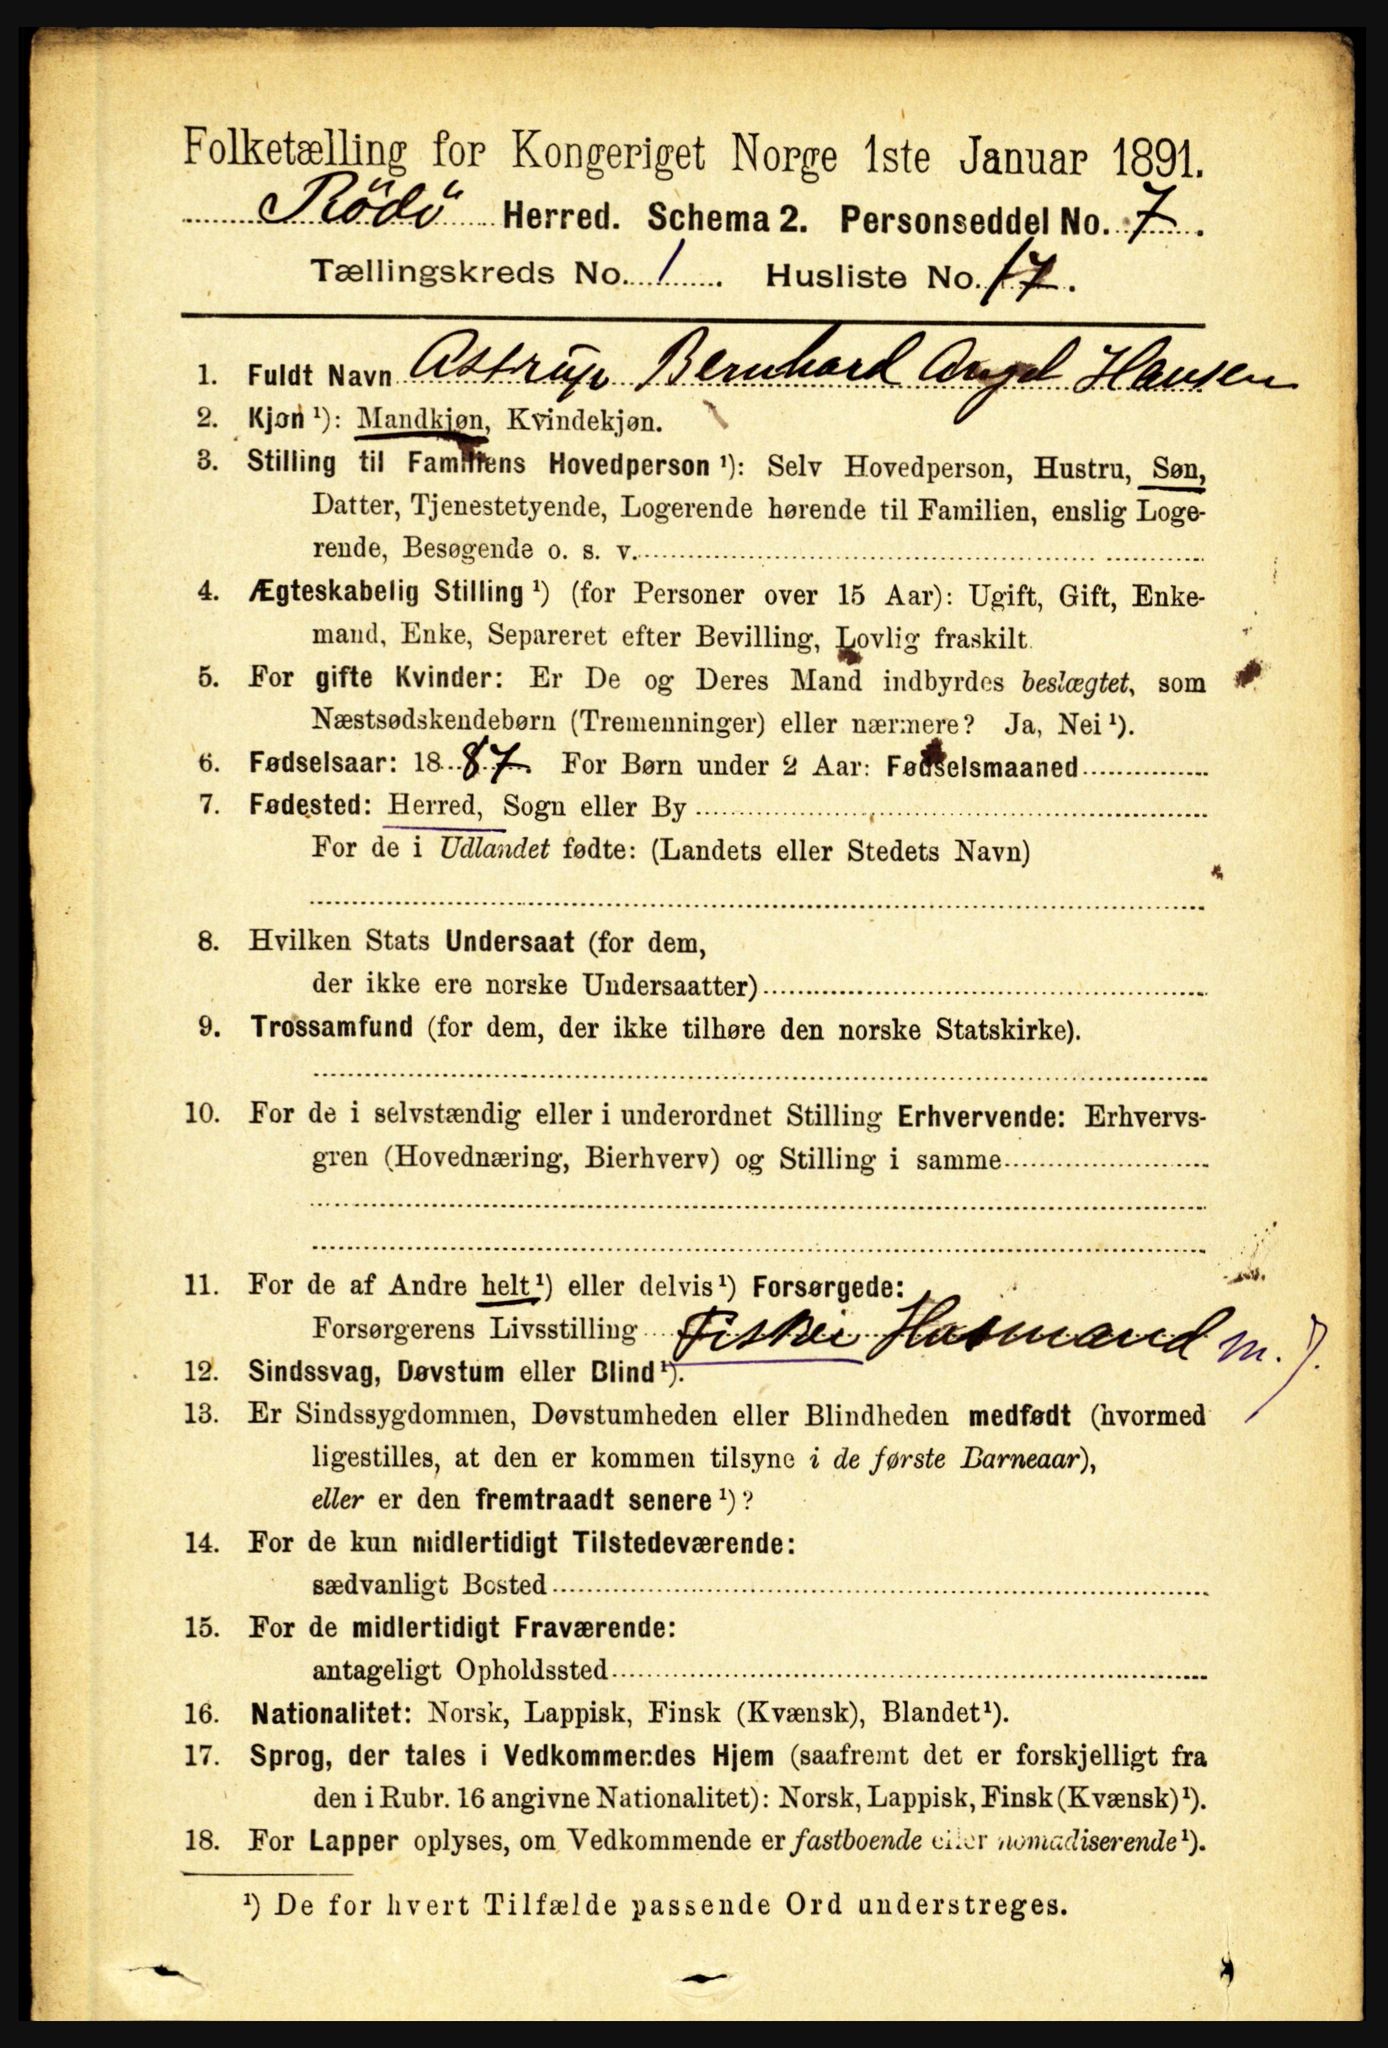 Folketælling for Kongeriget Norge 1ste Januar 1891.
Rödö Herred. Schema 2. Personseddel No. 7.
Tællingskreds No. 1. Husliste No. 17.
1. Fuldt Navn Astrup Bernhard Angel Hansen
2. Kjøn¹): Mandkjøn, Kvindekjøn.
3. Stilling til Familiens Hovedperson¹): Selv Hovedperson, Hustru, Søn,
Datter, Tjenestetyende, Logerende hørende til Familien, enslig Loge-
rende, Besøgende o. s. v.
4. Ægteskabelig Stilling¹) (for Personer over 15 Aar): Ugift, Gift, Enke-
mand, Enke, Separeret efter Bevilling, Lovlig fraskilt.
5. For gifte Kvinder: Er De og Deres Mand indbyrdes beslægtet, som
Næstsødskendebørn (Tremenninger) eller nærmere? Ja, Nei¹).
6. Fødselsaar: 1887. For Børn under 2 Aar: Fødselsmaaned
7. Fødested: Herred, Sogn eller By
For de i Udlandet fødte: (Landets eller Stedets Navn)
8. Hvilken Stats Undersaat (for dem,
der ikke ere norske Undersaatter)
9. Trossamfund (for dem, der ikke tilhøre den norske Statskirke).
10. For de i selvstændig eller i underordnet Stilling Erhvervende: Erhvervs-
gren (Hovednæring, Bierhverv) og Stilling i samme
11. For de af Andre helt¹) eller delvis¹) Forsørgede:
Forsørgerens Livsstilling Fisker Husmand m. J.
12. Sindssvag, Døvstum eller Blind¹).
13. Er Sindssygdommen, Døvstumheden eller Blindheden medfødt (hvormed
ligestilles, at den er kommen tilsyne i de første Barneaar),
eller er den fremtraadt senere¹)?
14. For de kun midlertidigt Tilstedeværende:
sædvanligt Bosted
15. For de midlertidigt Fraværende:
antageligt Opholdssted
16. Nationalitet: Norsk, Lappisk, Finsk (Kvænsk), Blandet¹).
17. Sprog, der tales i Vedkommendes Hjem (saafremt det er forskjelligt fra
den i Rubr. 16 angivne Nationalitet): Norsk, Lappisk, Finsk (Kvænsk)¹).
18. For Lapper oplyses, om Vedkommende er fastboende eller nomadiserende¹).
¹) De for hvert Tilfælde passende Ord understreges.